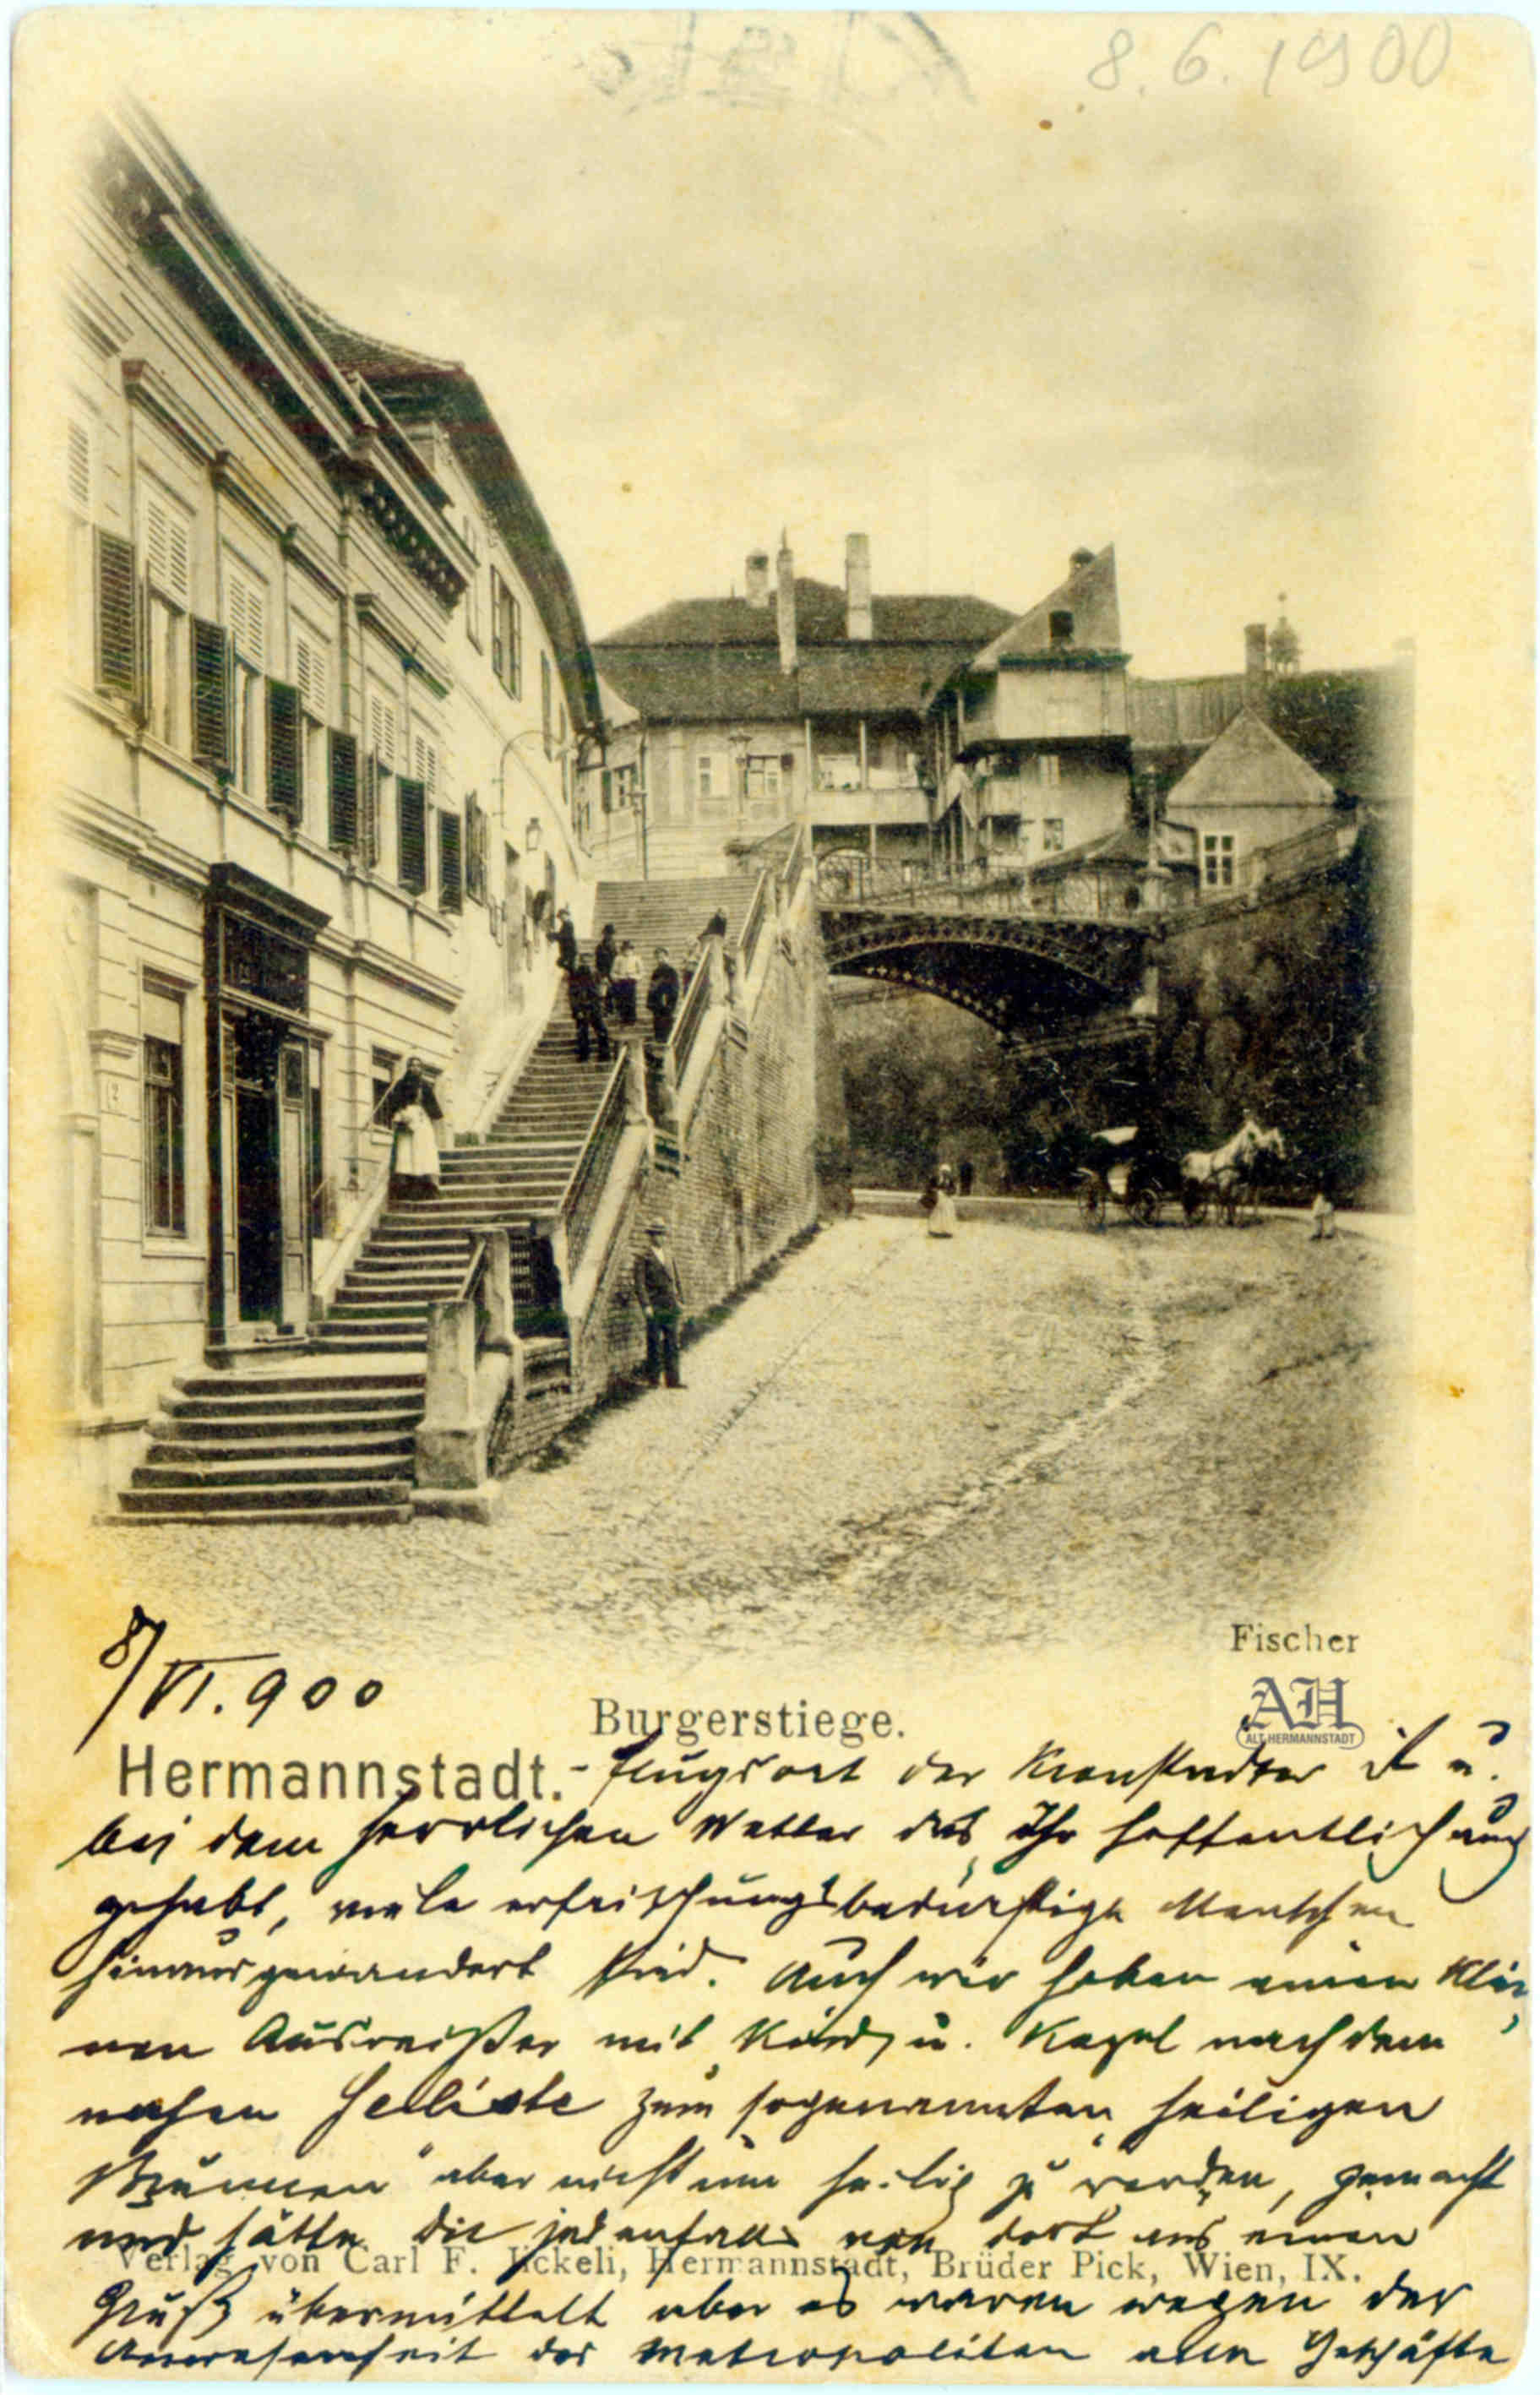 8.6.1900
12
Fischer
8/VI.900
Burgerstiege.
AH
ALT-HERMANNSTADT
Hermannstadt.- flugsort der Kronstädter ist u.
bei dem herrlichen Wetter das Ihr hoffentlich auch
gehabt, viele erfrischungsbedürftige Menschen
hinausgewandert sind. Auch wir haben einen klei-
nen Ausreißer mit Kind u. Kegel nach dem
nahen Selliste zum sogenannten heiligen
Brunnen" aber nicht um heilig zu werden, gemacht
und hätte Dir jedenfalls von dort aus einen
Verlag von Carl F. Jickeli, Hermannstadt, Brüder Pick, Wien, IX.
Gruß übermittelt aber es waren wegen der
Anwesenheit des Metropoliten alle Geschäfte